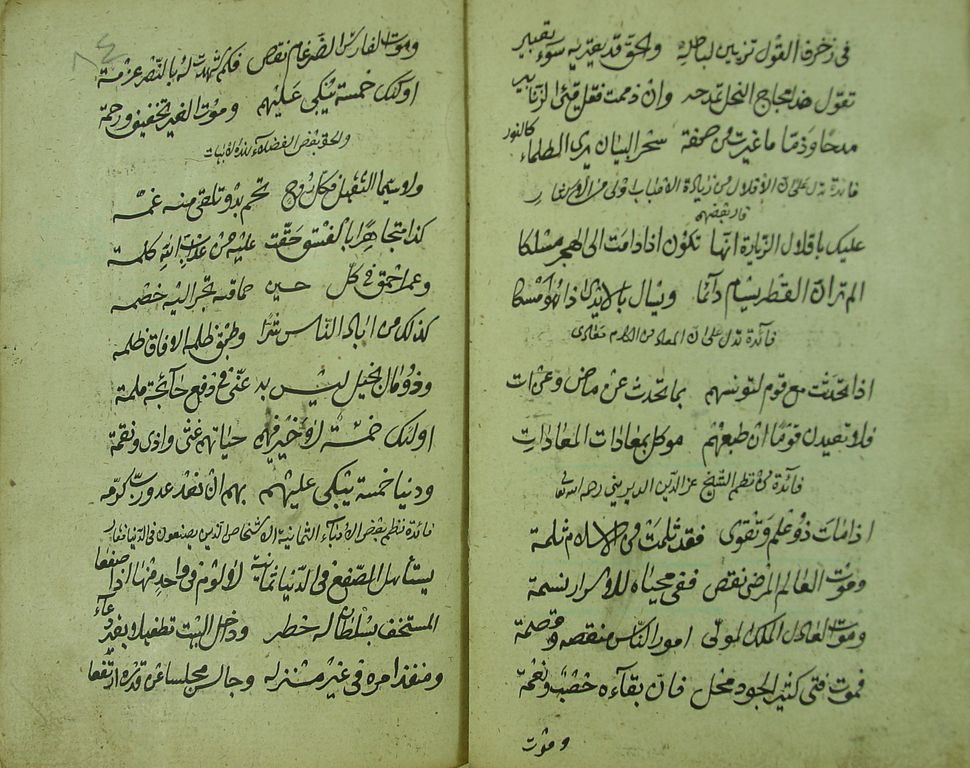 في زخرف القول تزيين لباطله والحق قد يعتريه سوء تعبير
تقول هذا مجاج النحل تمدحه وان ذممت فقل قيئ الزنابير
مدحا وذما ما غيرت من صفة سحر البيان يرى الظلماء كالنور
فائدة تدل على ان الاقلال من زيادة
قال بعضهم
عليك باقلال الزيارة انها تكون اذا دامت الى الهجر مسلكا
الم تر ان القطر يسأم دائما ويسال بالايدي اذا هو امسكا
فائدة تدل على ان المعاد من الكلام معادى
اذا تحدثت مع قوم لتونسهم بما تحدث عن ماض وعن ات
فلا تعيدن قوما ان طبعهم موكل بمعادات المعادات
فائدة من نظم الشيخ عز الدين الديريني رحمه الله تعالى
اذا مات ذو علم وتقوى فقد ثلمت من الاسلام ثلمة
وموت العالم المرضي نقص ففي محياه للاسرار نسمة
وموت العادل الملك المولى امور الناس منقصة وقصمة
فموت فتى كثير الجود محل فان بقاءه خصب ونعمة
وموت
وموت الفارس الضرغام نقص فكم شهدت له بالنصر عزمة
اولئك خمسة يبكى عليهم وموت الغير تخفيف ورحمة
والحق بعض الفضلاء بهذه الابيات
ولا سيما الثقيل فكل روح تحم بدو تلقى منه غمه
كذا متجاهرا بالفسق حقت عليه من عذاب الله كلمة
وعم احمق في كل حين حماقته تجر اليه خصمه
كذلك من اباد الناس شرا وطبق ظلمه الافاق ظلمه
وذو مال بخيل ليس يدعى في دفع حائجة ملمة
اولئك خمسة لا خير فيهم حياتهم عنى واذى ونقمة
ودنيا خمسة يبكى عليهم بهم ان نعد عدو رب كرمه
فائدة نظم بعض الادباء الثمانية الاشخاص الذين يصفعون في الدنيا فقال
يستأهل الصفع في الدنيا ثمانية لا لوم في واحد منها اذا صفعا
المستخف بسلطان له خطر وداخل البيت تطفيلا بغير دعاء
ومنفذ امره في غير منزله وجالس مجلسا عن قدره ارتفعا